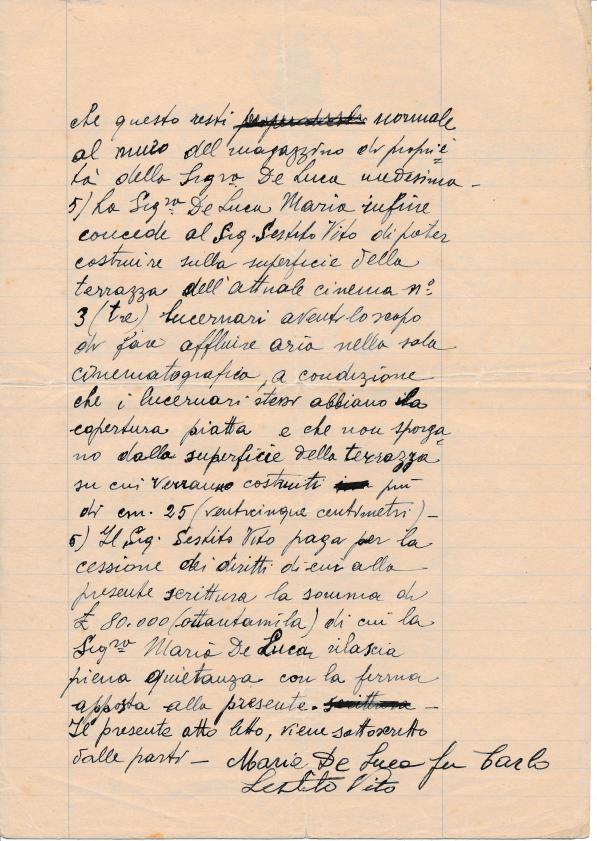 che questo resti normale
al muro del magazzino di proprie=
tà della Sig.ra De Luca medesima –
5) La Sig.ra De Luca Maria infine
concede al Sig. Sestito Vito di poter
costruire sulla superficie della
terrazza dell'attuale cinema n°.
3 (tre) lucernari aventi lo scopo
di fare affluire aria nella sala
cinematografica, a condizione
che i lucernari stessi abbiano la
copertura piatta e che non sporga=
no dalla superficie della terrazza
su cui verranno costruiti più
di cm. 25 (venticinque centimetri) –
6) Il Sig. Sestito Vito paga per la
cessione dei diritti di cui alla
presente scrittura la somma di
£ 80.000 (ottantamila) di cui la
Sig.ra Maria De Luca rilascia
piena quietanza con la firma
apposta alla presente. scrittura –
Il presente atto letto, viene sottoscritto
dalle parti – Maria De Luca fu Carlo
Sestito Vito